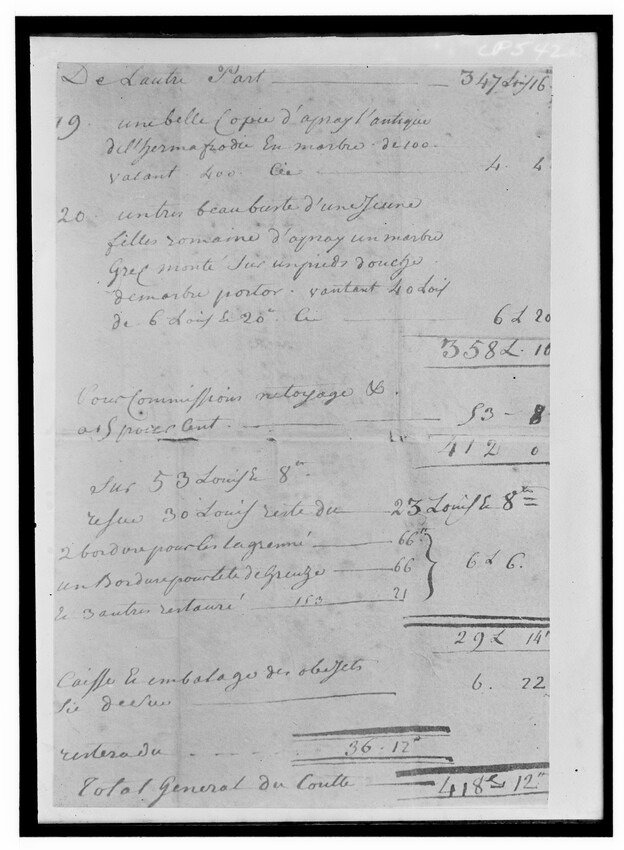 CP542
De Lautre Part 347 Louis 16
19. une belle Copie d'apnay l'antique
de l'hermafrodie En marbre de 100.
valant 400. Cie 4. 4
20. un tres beau buste d'une Jeune
filles romaine d'apnay un marbre
Grec monté sur un pieds douche
de marbre portor. vautant 40 Lois
de 6 Louis Et 20" Ce 6 L 20
358 L. 16
Pour Commissions netoyage &.
a 15 pour Cent. 53 - 8
412 0
Sur 53 Louis Et 8".
resue 30 Louis reste du 23 Louis Et 8"
2 bordure pour les lagrenné 66"
un Bordure pour tete de Greuze 66 6 L 6.
Et 3 autres restauré 153 21
29 L 14"
Caisse Et embalage des objets
6. 22
restera du 36 - 12"
Total General du Coutte 418 L 12"